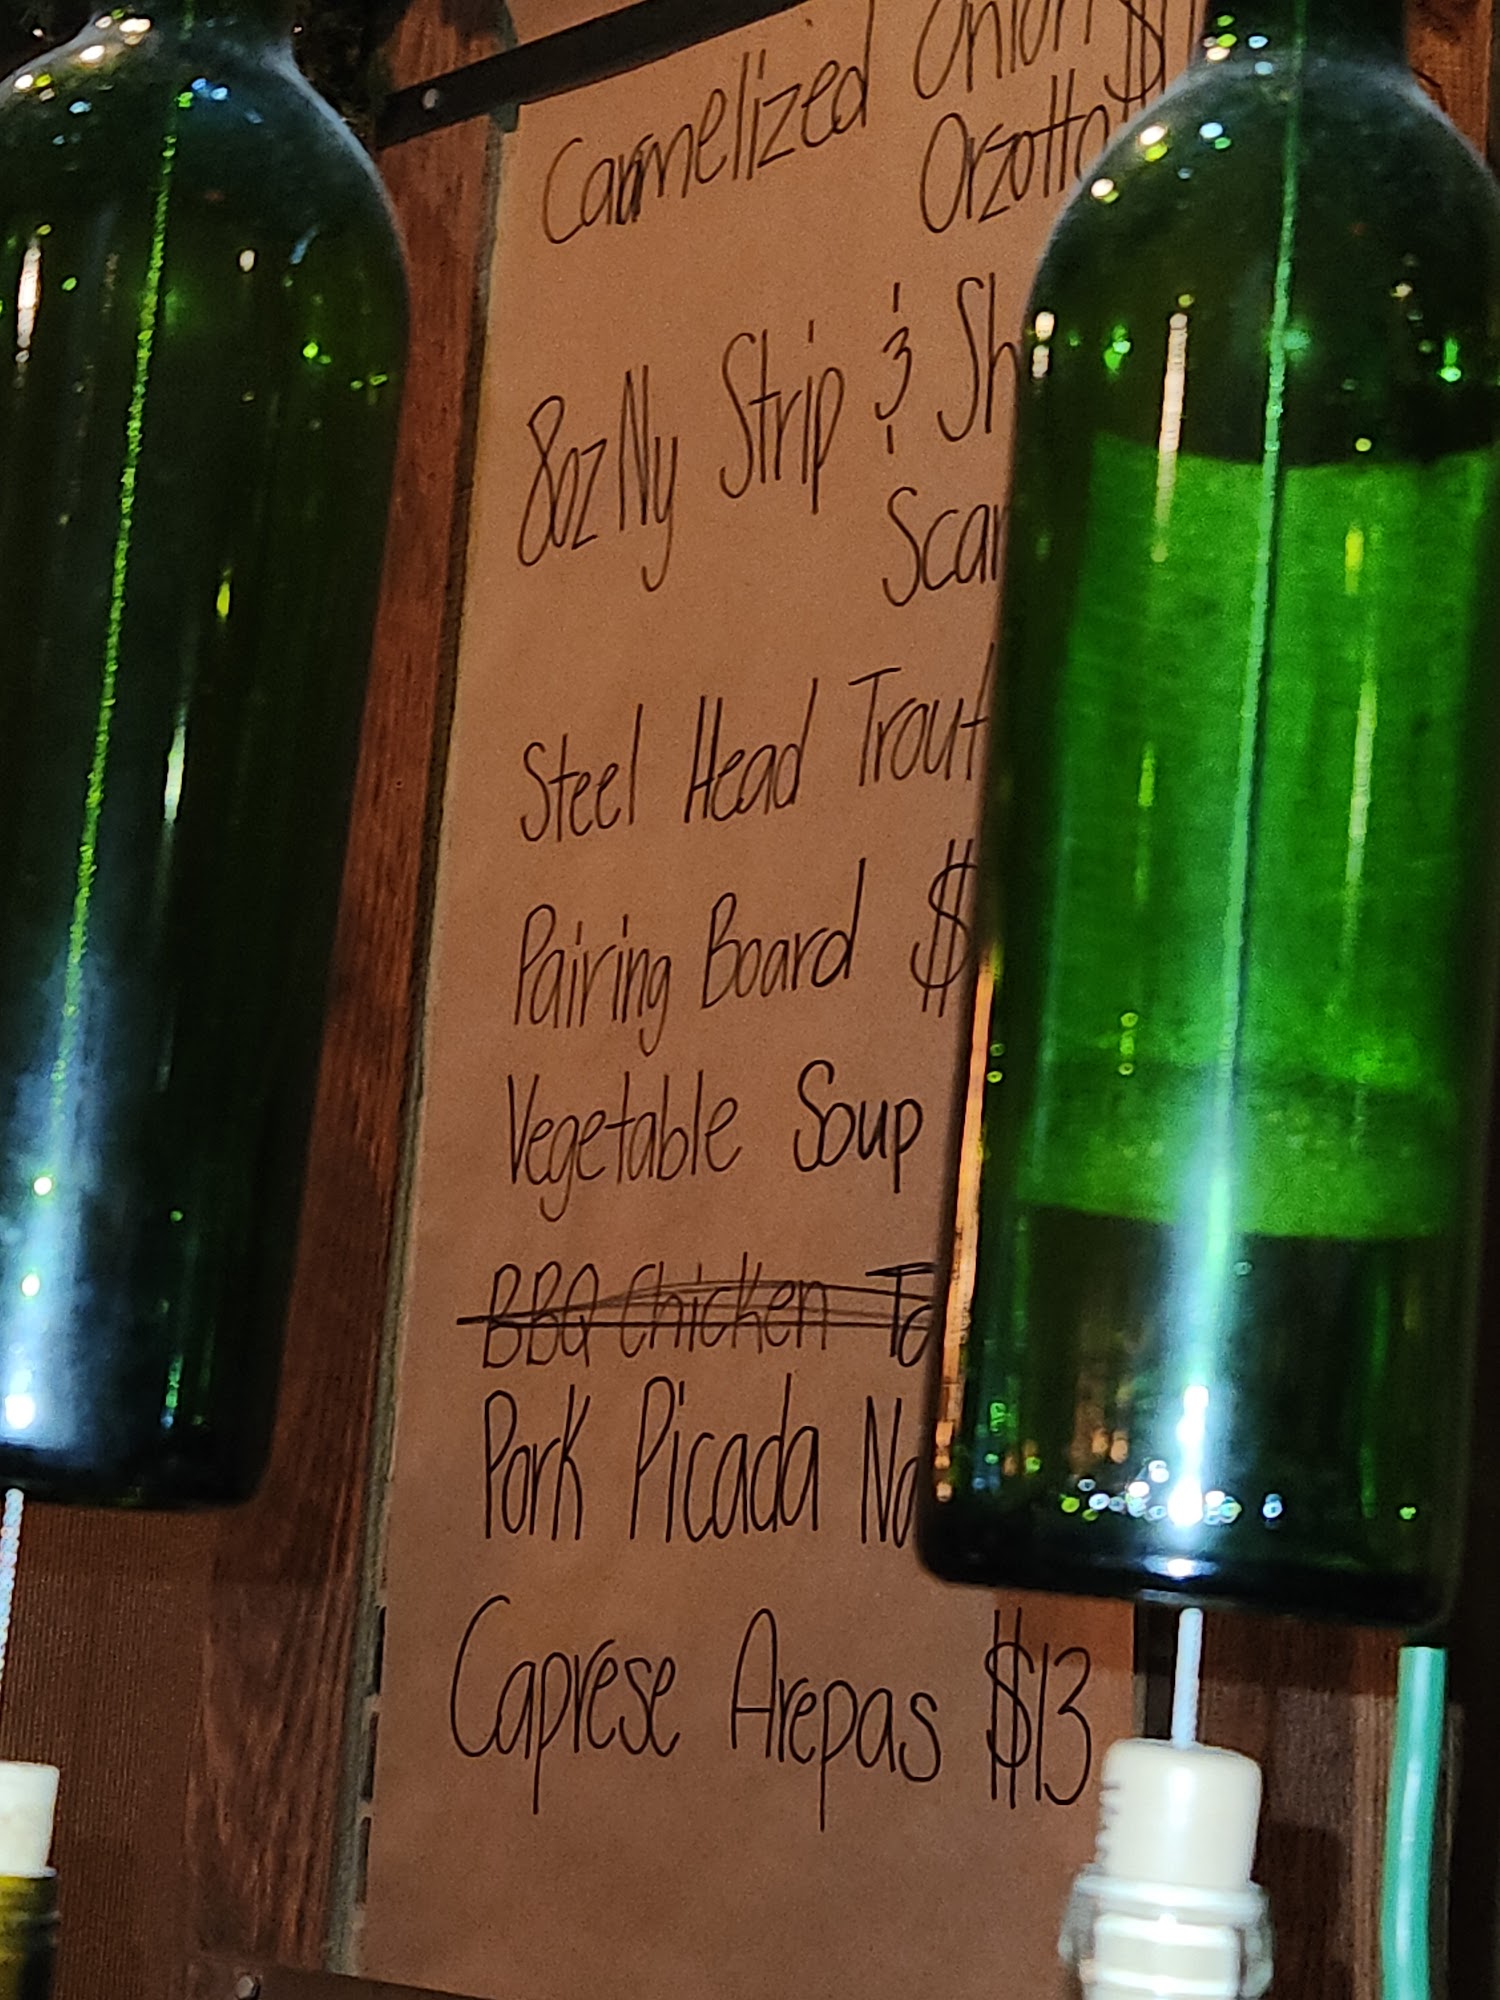 Carmelized Onion $
Orzotto $
8oz Ny Strip & Sh
Scam
Steel Head Trout
Pairing Board $
Vegetable Soup
BBQ Chicken Ta
Pork Picada Na
Caprese Arepas $13